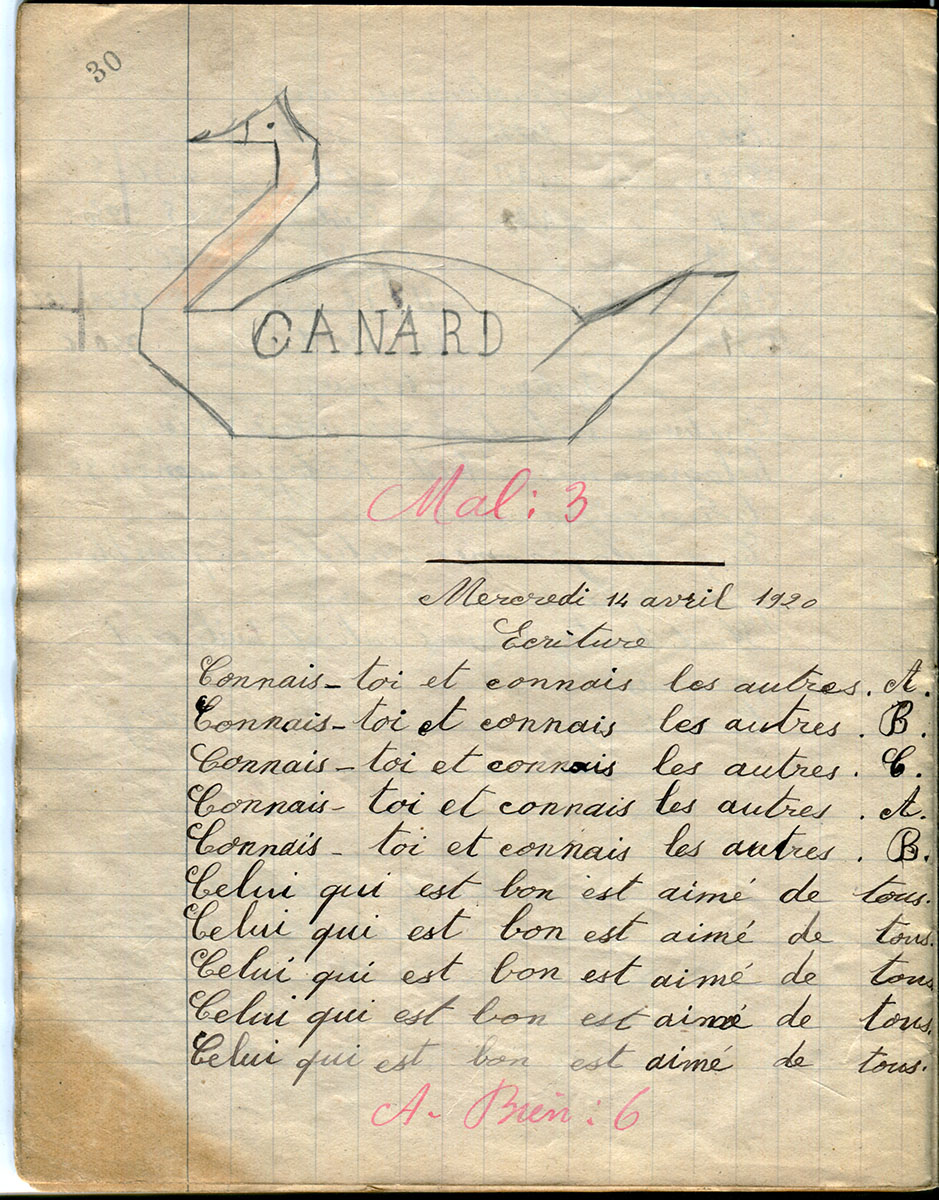 30
CANARD
Mal : 3
Mercredi 14 avril 1920
Ecriture
Connais-toi et connais les autres. A.
Connais-toi et connais les autres. B.
Connais-toi et connais les autres. C.
Connais-toi et connais les autres. A.
Connais-toi et connais les autres. B.
Celui qui est bon est aimé de tous.
Celui qui est bon est aimé de tous.
Celui qui est bon est aimé de tous
Celui qui est bon est aimé de tous.
Celui qui est bon est aimé de tous.
A- Bien : 6